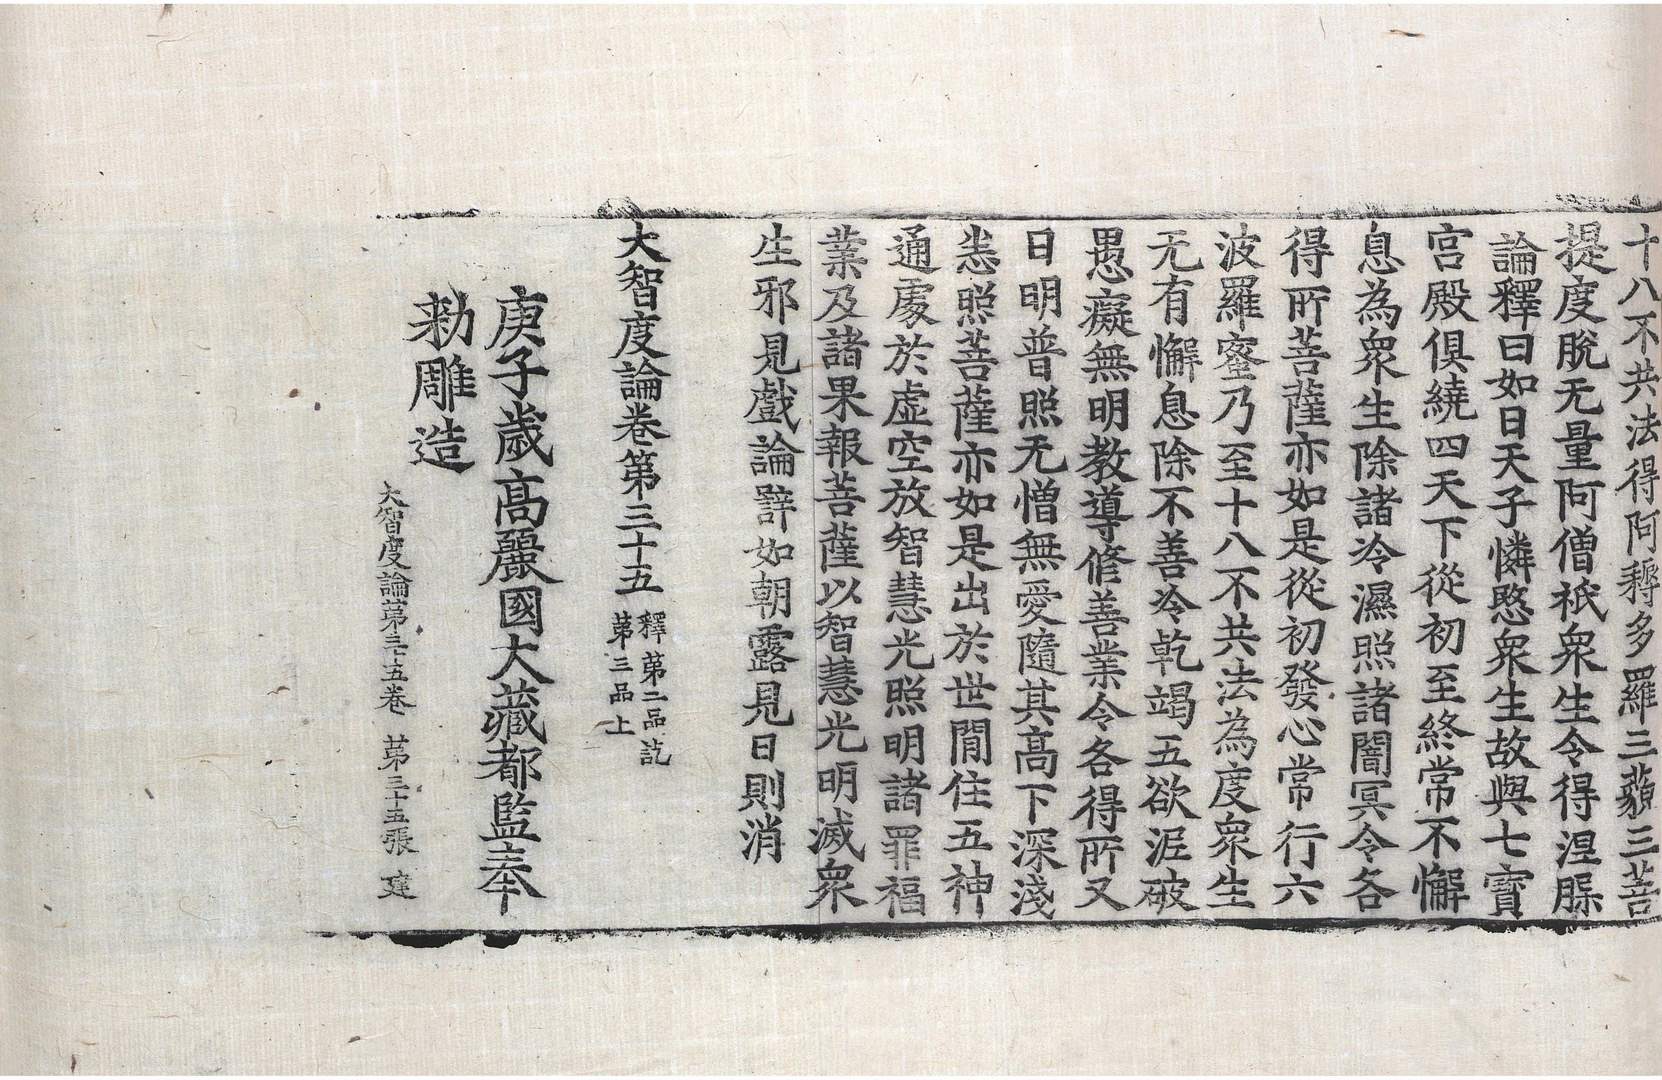 十八不共法得阿耨多羅三藐三菩
提度脫无量阿僧祇衆生令得涅槃
論釋曰如日天子憐愍衆生故與七寶
宮殿俱繞四天下從初至終常不懈
息為衆生除諸冷濕照諸闇冥令各
得所菩薩亦如是從初發心常行六
波羅蜜乃至十八不共法為度衆生
无有懈息除不善冷乾竭五欲泥破
愚癡無明教導修善業令各得所又
日明普照无憎無愛隨其高下深淺
悉照菩薩亦如是出於世閒住五神
通處於虛空放智慧光照明諸罪福
業及諸果報菩薩以智慧光明滅衆
生邪見戲論譬如朝露見日則消
大智度論卷第三十五
釋第二品訖
第三品上
庚子歲高麗國大藏都監奉
勅雕造
大智度論第三十五卷 第三十五張 建